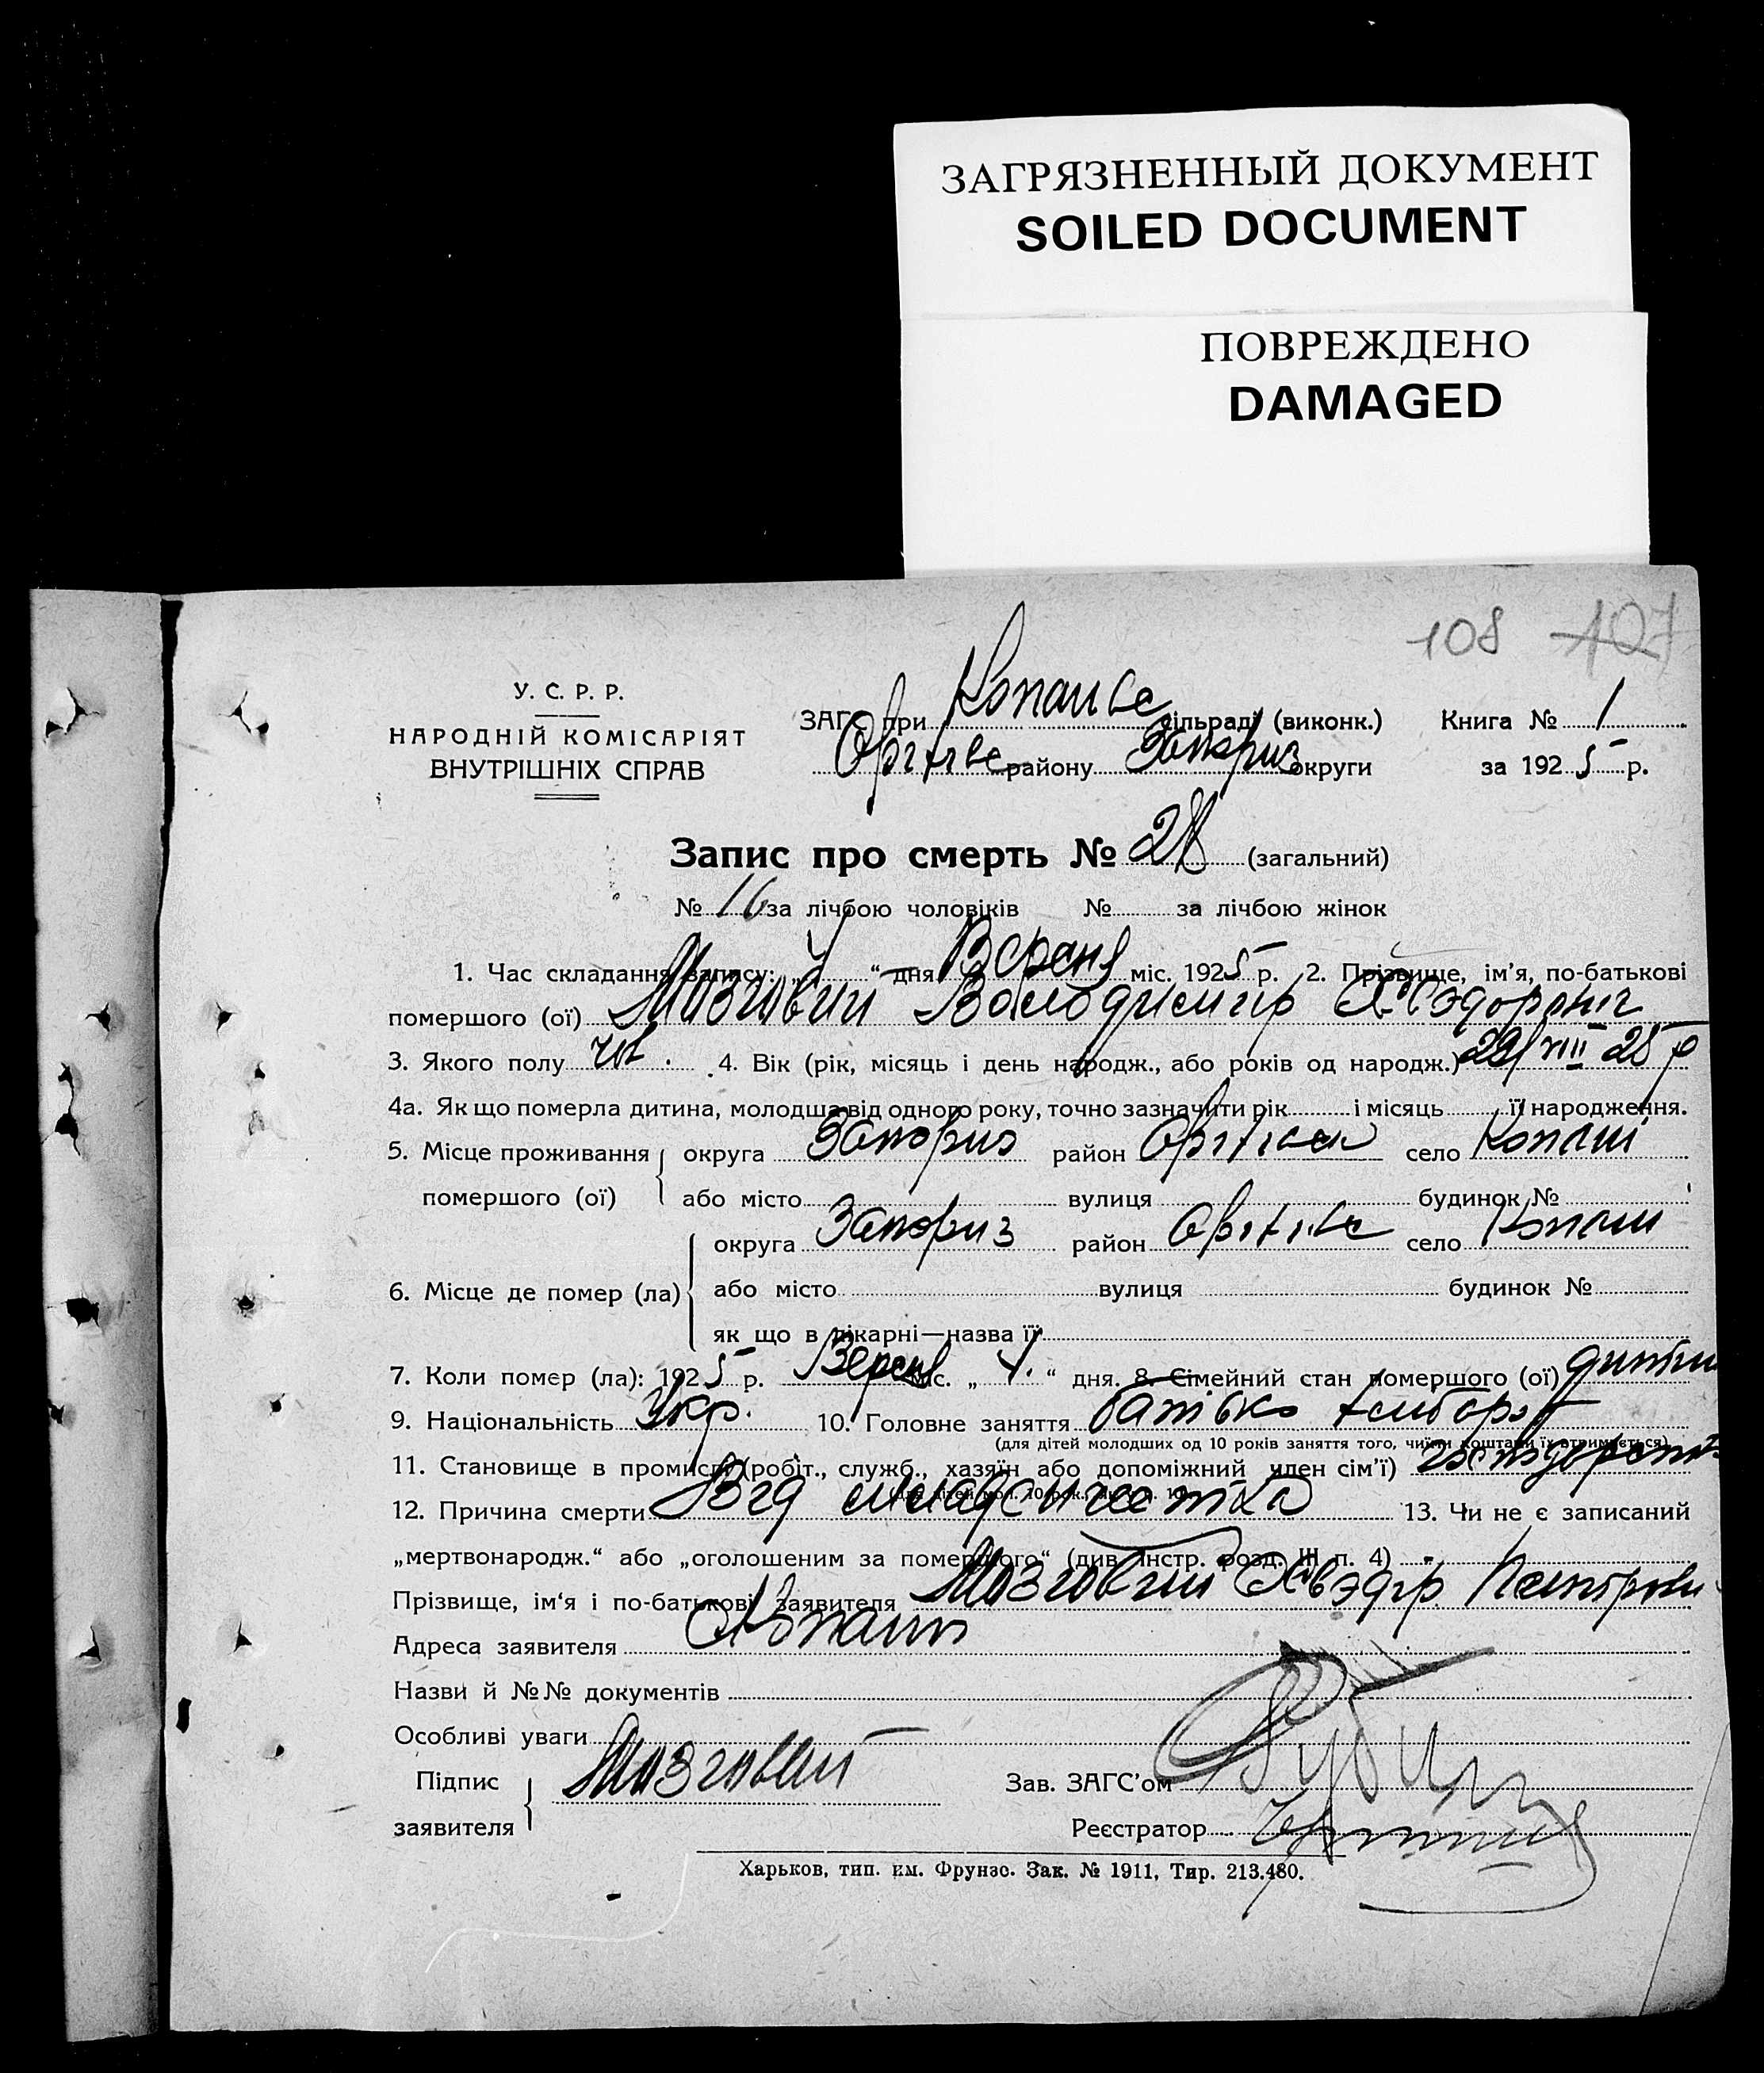 ЗАГРЯЗНЕННЫЙ ДОКУМЕНТ
SOILED DOCUMENT
ПОВРЕЖДЕНО
DAMAGED
108 107
У. С. Р. Р.
НАРОДНІЙ КОМІСАРІЯТ
ВНУТРІШНІХ СПРАВ
ЗАГС при Копансе сільраді (виконк.) Книга № 1
району Запориз округи за 1925 р.
Запис про смерть № 28 (загальний)
№ 16 за лічбою чоловіків № за лічбою жінок
1. Час складання запису: „ 4 “ дня Вересня міс. 1925 р. 2. Прізвище, ім’я, по-батькові
помершого (ої) Мазговий Володимир
3. Якого полу чол. 4. Вік (рік, місяць і день народж., або років од народж.) 29/VIII 25 р
4а. Як що померла дитина, молодша від одного року, точно зазначити рік і місяць її народження.
5. Місце проживання округа Запориз район село Копані
помершого (ої) або місто вулиця будинок №
округа Запориз район село Копани
6. Місце де помер (ла) або місто вулиця будинок №
як що в лікарні—назва її
7. Коли помер (ла): 1925 р. Вересня міс. „ 4. “ дня. 8. Сімейний стан помершого (ої) дитин
9. Національність Укр. 10. Головне заняття батько хлібороб
(для дітей молодших од 10 років заняття того, чиїми коштами їх втримується)
11. Становище в промислі (робіт., служб., хазяїн або допоміжний член сім’ї)
12. Причина смерти Від 13. Чи не є записаний
„мертвонародж.“ або „оголошеним за помершого“ (див. інстр. розд. III п. 4) -
Прізвище, ім‘я і по-батькові заявителя Мазговий
Адреса заявителя Копани
Назви й №№ документів
Особливі уваги
Підпис
заявителя Мазговий
Зав. ЗАГС’ом
Реєстратор
Харьков, тип. им. Фрунзе. Зак. № 1911, Тир. 213.480.